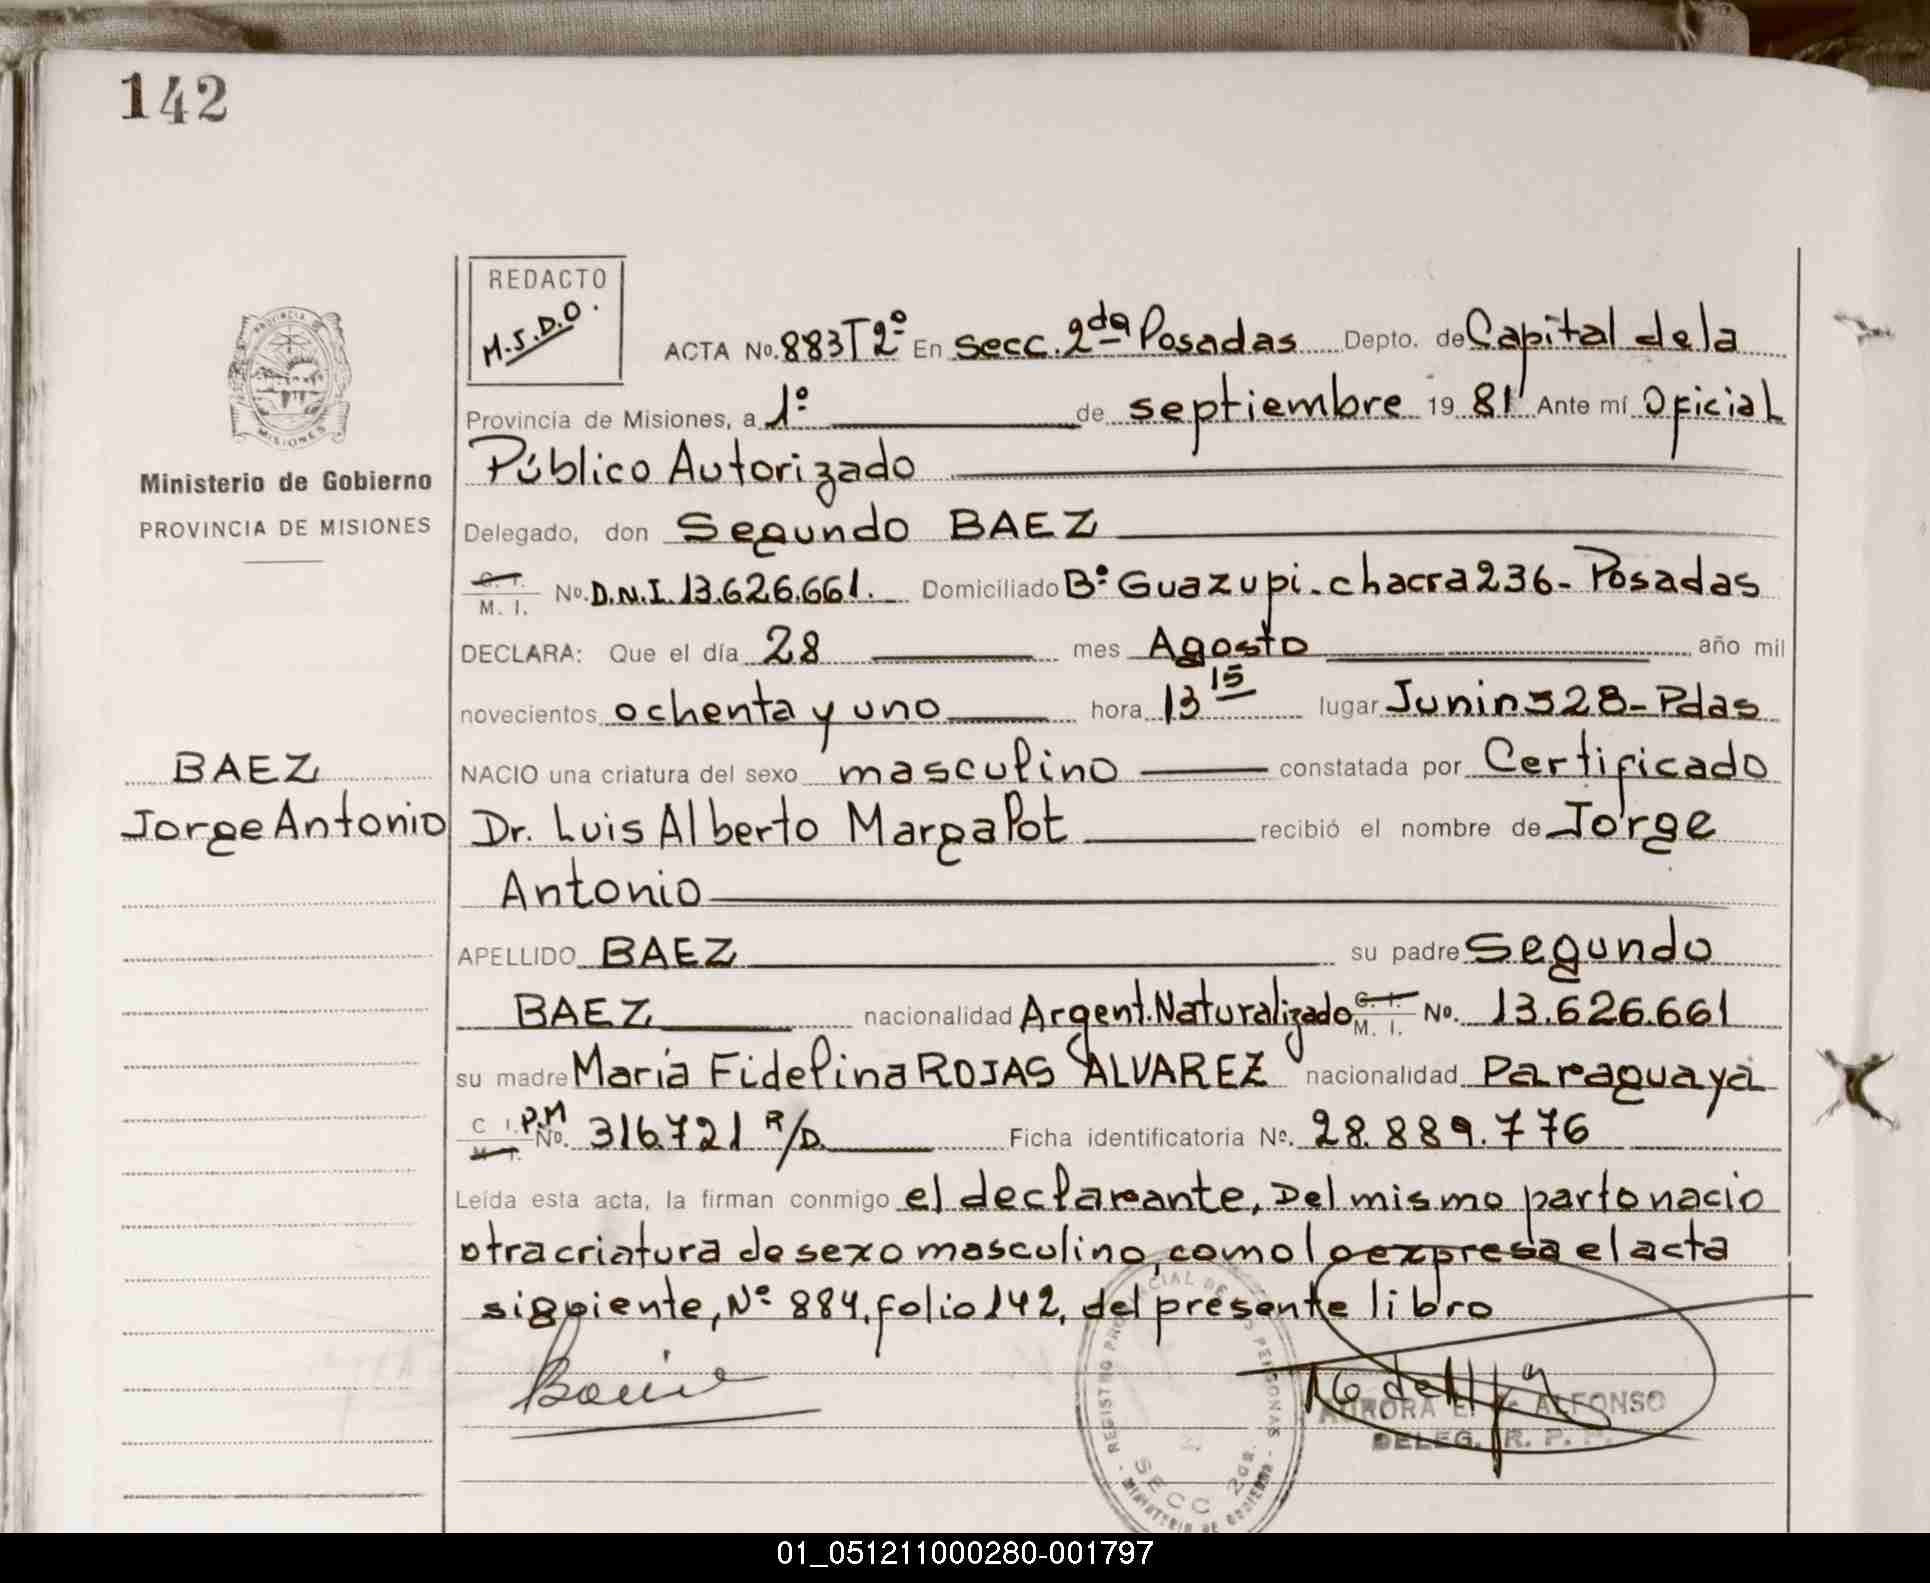 142
REDACTO
M.S.D.O.
ACTA No. 883 T 2º En Secc. 2da Posadas Depto. de Capital de la
Provincia de Misiones, a 1º de septiembre 19 81 Ante mí Oficial
Público Autorizado
Delegado, don Segundo BAEZ
C. I.
M. I. No. D.N.I. 13.626.661. Domiciliado Bº Guazupi - chacra 236 - Posadas
DECLARA: Que el día 28 mes Agosto año mil
novecientos ochenta y uno hora 13 15 lugar Junin 328 - Pdas
NACIO una criatura del sexo masculino constatada por Certificado
Dr. Luis Alberto Margalot recibió el nombre de Jorge
Antonio
APELLIDO BAEZ su padre Segundo
BAEZ nacionalidad Argent. Naturalizado C. I. M. I. No. 13.626.661
su madre María Fidelina ROJAS ALVAREZ nacionalidad Paraguaya
C I. P.M M. I. No. 316.721 R/D. Ficha identificatoria Nº. 28.889.776
Leída esta acta, la firman conmigo el declarante, Del mismo parto nacio
otra criatura de sexo masculino, como lo expresa el acta
siguiente, Nº 884, folio 142, del presente libro
PROVINCIA DE
MISIONES
Ministerio de Gobierno
PROVINCIA DE MISIONES
BAEZ
Jorge Antonio
REGISTRO PROVINCIAL DE PERSONAS
SECC 2da.
MINISTERIO DE GOBIERNO
AURORA E. ALFONSO
DELEG. R. P.
01_051211000280-001797